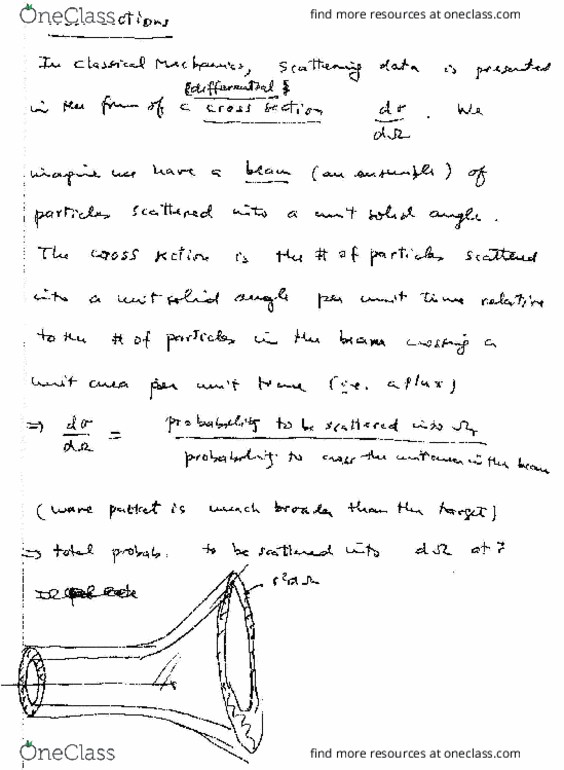 OneClass
find more resources at oneclass.com
sections
In Classical Mechanics, scattering data is presented
{differential}
in the form of a cross section dσ/dΩ. We
imagine we have a beam (an ensemble) of
particles scattered into a unit solid angle.
The cross section is the # of particles scattered
into a unit solid angle per unit time relative
to the # of particles in the beam crossing a
unit area per unit time (i.e. a flux)
⇒ dσ/dΩ = probability to be scattered into Ω / probability to cross the unit area in the beam
(wave packet is much broader than the target)
⇒ total probab. to be scattered into dΩ at
r²dΩ
OneClass
find more resources at oneclass.com